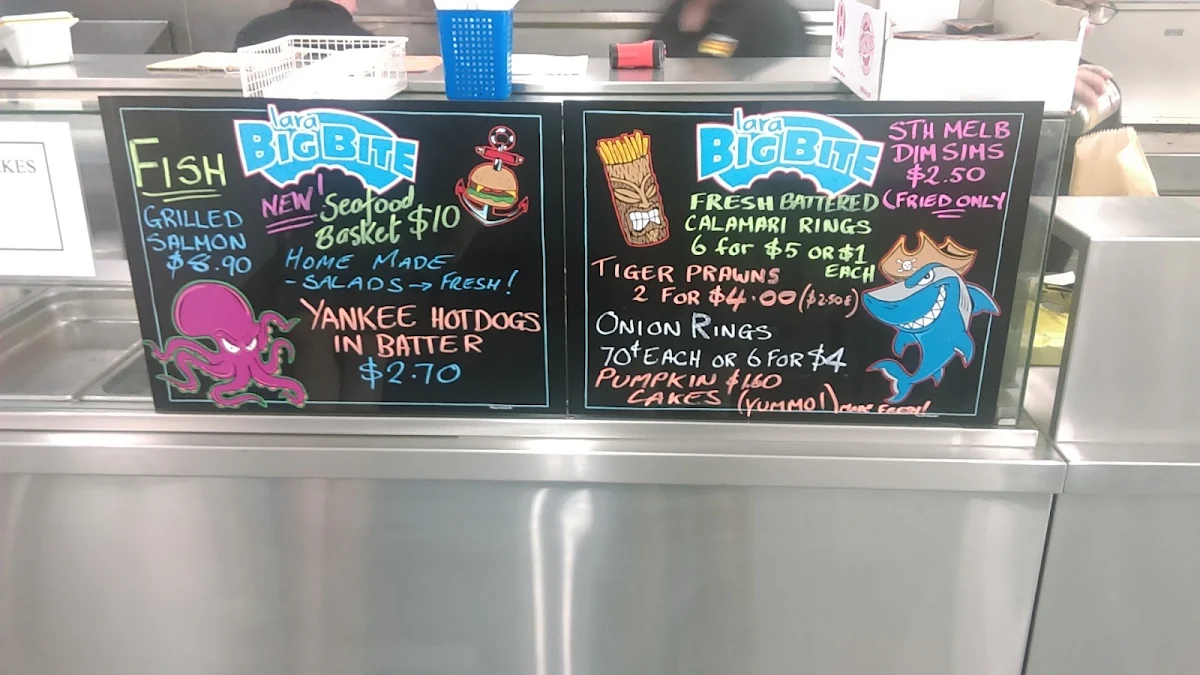 KES
lara
BIG BITE
FISH
GRILLED
SALMON
$8.90
NEW! Seafood
Basket $10
HOME MADE
- SALADS → FRESH!
YANKEE HOTDOGS
IN BATTER
$2.70
lara
BIG BITE
STH MELB
DIM SIMS
$2.50
(FRIED ONLY
FRESH BATTERED
CALAMARI RINGS
6 for $5 OR $1
EACH
TIGER PRAWNS
2 FOR $4.00 ($2.50E)
ONION RINGS
70¢ EACH OR 6 FOR $4
PUMPKIN $1.60
CAKES (YUMMO!) MADE FRESH!